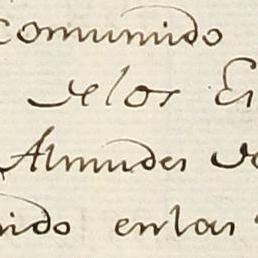 comunido
de los Es
Almudes de
nido en las